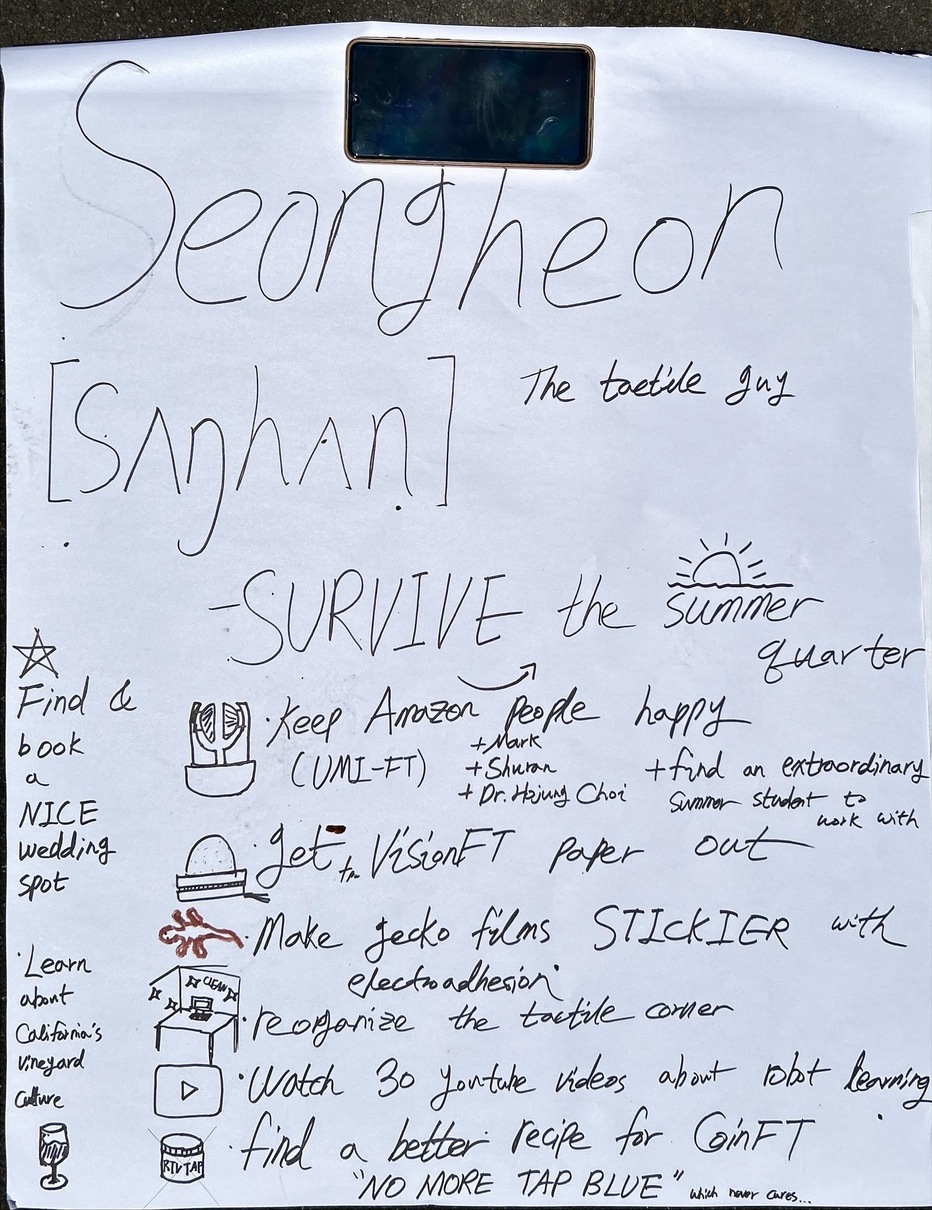 Seongheon
[Sʌŋhʌn]
The tactile guy
-SURVIVE the summer
quarter
☆
Find &
book
a
NICE
wedding
spot
· Learn
about
California's
vineyard
culture
· Keep Amazon people happy
(UMI-FT)
+ Mark
+ Shuran
+ Dr. Hojung Choi
+ find an extraordinary
summer student to
work with
· get the VisionFT paper out
· Make gecko films STICKIER with
electroadhesion
CLEAN
· reorganize the tactile corner
· Watch 30 youtube videos about robot learning
RTV TAP
· find a better recipe for CoinFT
"NO MORE TAP BLUE" which never cures...